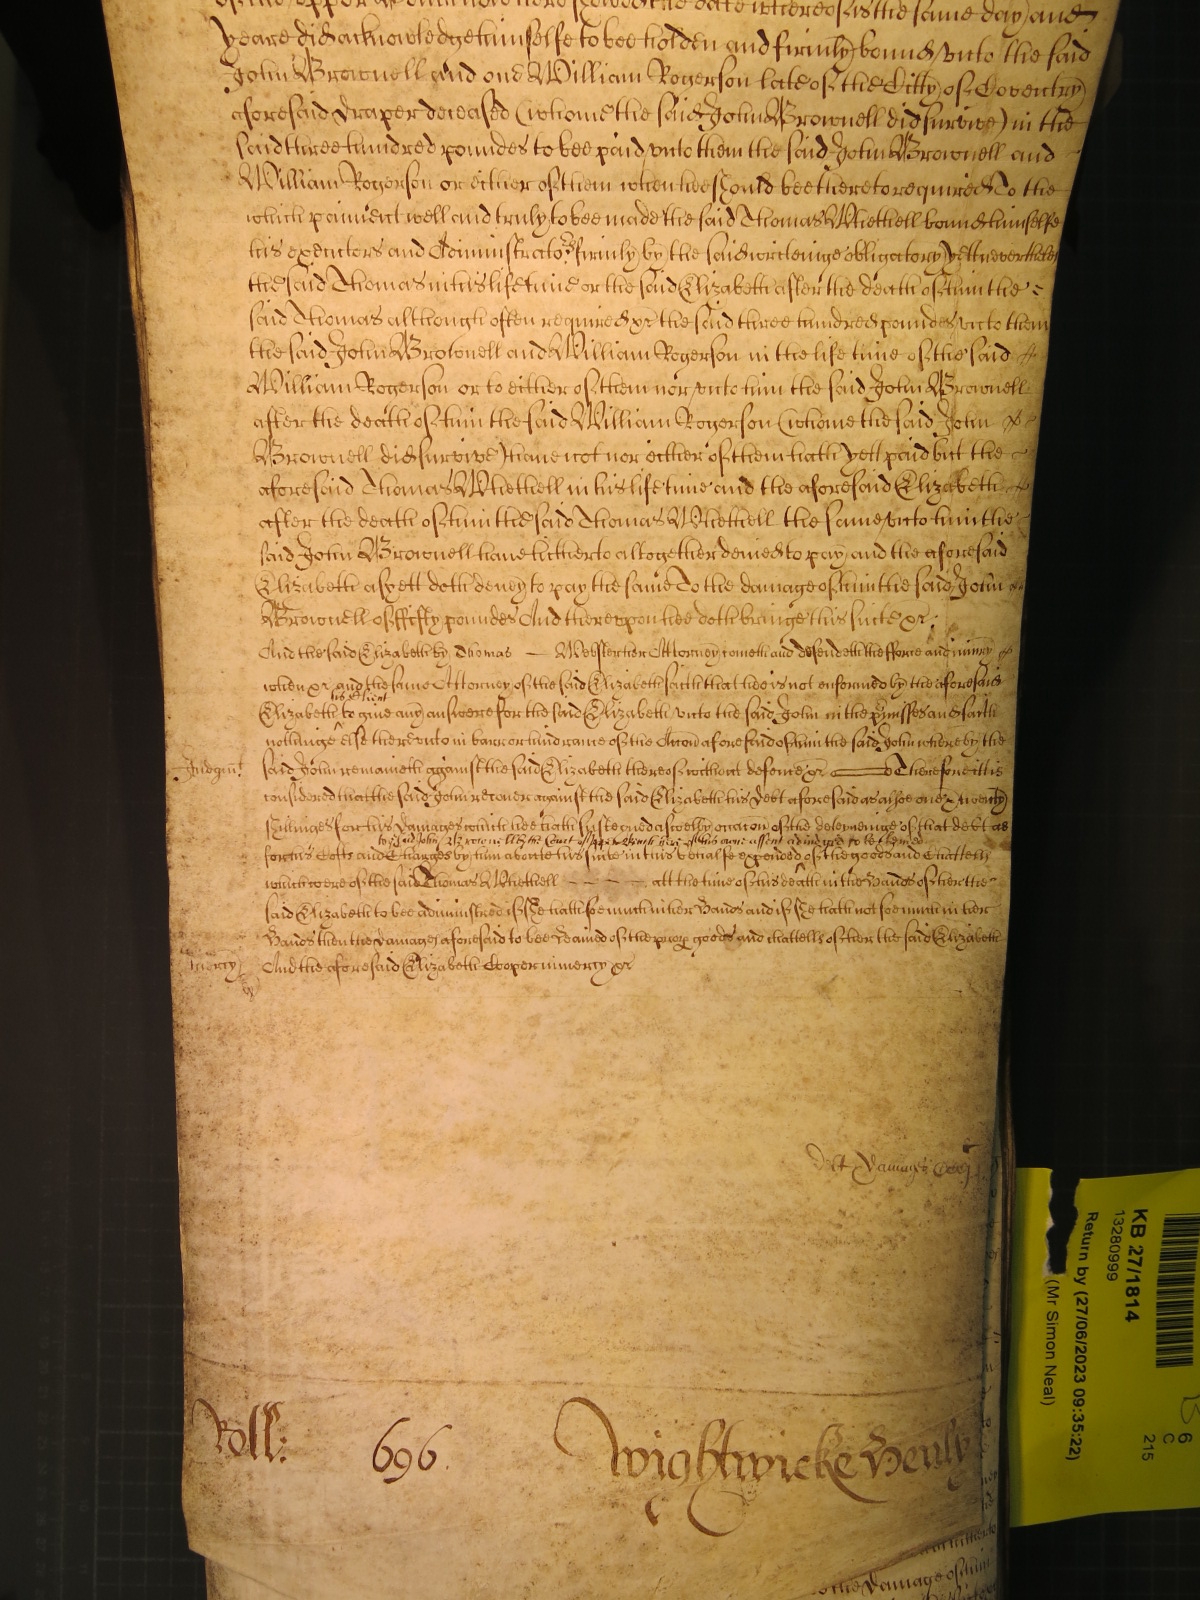 yeare did acknowledge himselfe to bee holden and firmely bound vnto the said
John Brownell and one William Rogerson late of the Citty of Coventry
aforesaid draper deceased (whome the said John Brownell did survive) in the
said three hundred poundes to bee paid vnto them the said John Brownell and
William Rogerson or either of them when hee should bee thereto required To the
which paiment well and truly to bee made the said Thomas Whethell bound himselfe
his executors and Administrators firmly by the said writeinge obligatory yett neverthelesse
the said Thomas in his life time or the said Elizabeth after the death of him the
said Thomas although often required &c the said three hundred poundes vnto them
the said John Brownell and William Rogerson in the life time of the said
William Rogerson or to either of them nor vnto him the said John Brownell
after the death of him the said William Rogerson (whome the said John
Brownell did survive) haue not nor either of them hath yett paid but the
aforesaid Thomas Whethell in his life time and the aforesaid Elizabeth
after the death of him the said Thomas Whethell the same vnto him the
said John Brownell haue hitherto altogether denied to pay and the aforesaid
Elizabeth as yett doth deny to pay the same To the damage of him the said John
Brownell of fifty poundes And thereupon hee doth bringe this suite &c
And the said Elizabeth by Thomas Webster her Attorney cometh and defendeth the force and iniury
when &c and the same Attorney of the said Elizabeth saith that hee is not enformed by the aforesaid
his Client
Elizabeth to giue any answere for the said Elizabeth vnto the said John in the p'misses and saith
nothinge else therevnto in barr or hindrance of the Accon aforesaid of him the said John whereby the
Judgmt
said John remaineth against the said Elizabeth thereof without defence &c Therefore it is
considered that the said John recover against the said Elizabeth his Debt aforesaid as alsoe one &twenty
shillinges for his Damages which hee hath susteyned aswell by occacon of the deteyneinge of that debt as
to the said John Brownell by the Court of the vpper Bench here of his owne assent adiudged to be leavied
for his Costs and Charges by him about his suite in this behalfe expended of the goods and Chattells
which were of the said Thomas Whethell att the time of his death in the Hands of her the
said Elizabeth to bee administred if shee hath soe much in her Hands and if shee hath not soe much in her
Hands then the Damages aforesaid to bee leavied of the proper goods and chattells of her the said Elizabeth
mercy
And the aforesaid Elizabeth Cooper in mercy &c
debt Damages
Roll: 696. Wightwicke Henly
KB 27/1814
13280999
Return by (27/06/2023 09:35:22)
(Mr Simon Neal)
6
C
215